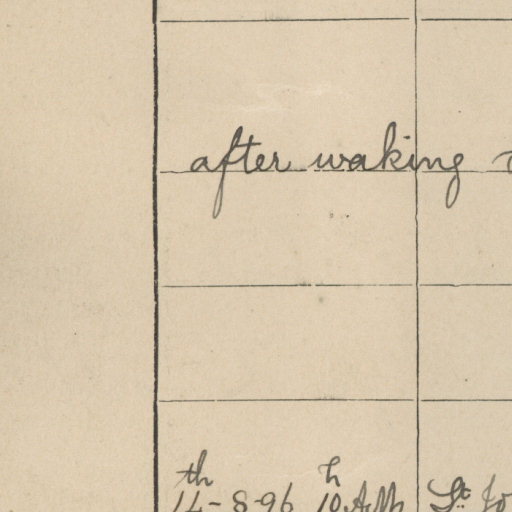 after waking
14th-8-96 10h AM St Jo